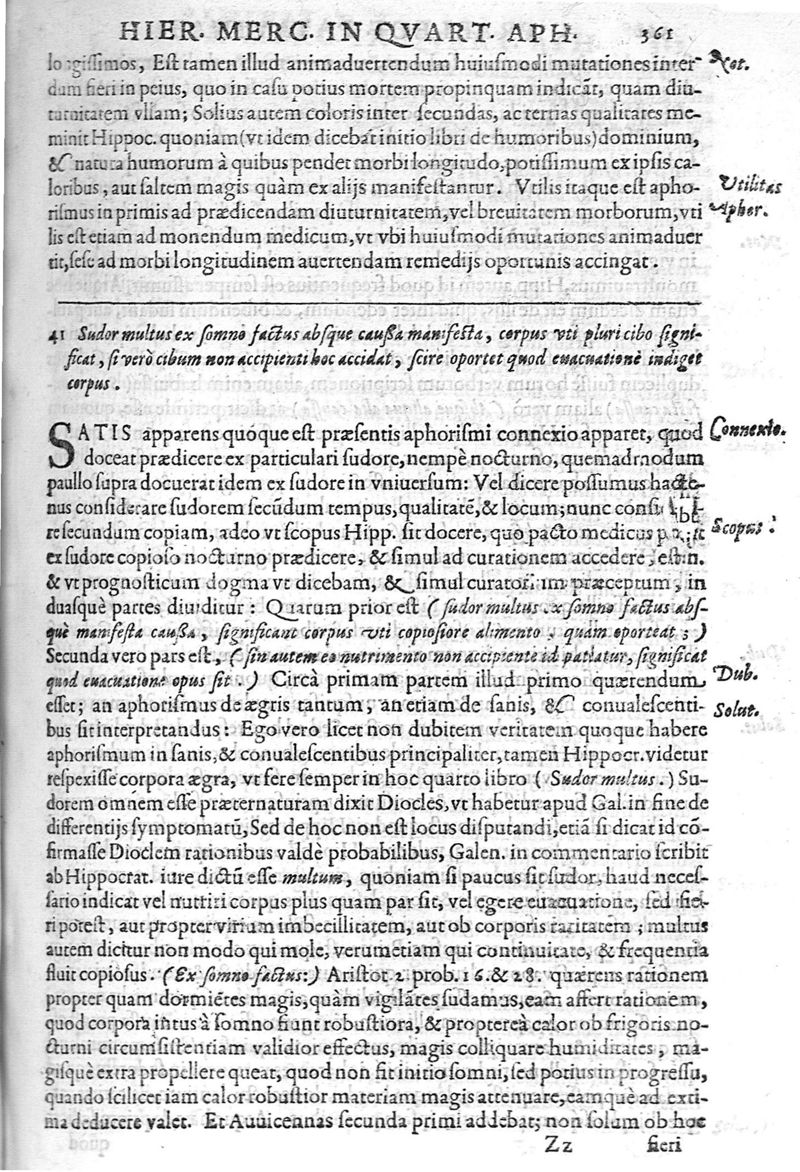 HIER. MERC. IN QVART. APH. 361
longissimos, Est tamen illud animaduertendum huiusmodi mutationes inter- Not.
dum fieri in peius, quo in casu potius mortem propinquam indicãt, quam diu-
turnitatem vllam; Solius autem coloris inter secundas, ac tertias qualitates me-
minit Hippoc. quoniam (vt idem dicebat initio libri de humoribus) dominium,
& natura humorum à quibus pendet morbi longitudo, potissimum ex ipsis ca-
loribus, aut saltem magis quàm ex alijs manifestantur. Vtilis itaque est apho- Vtilitas
rismus in primis ad prædicendam diuturnitatem, vel breuitatem morborum, vti Aphor.
lis est etiam ad monendum medicum, vt vbi huiusmodi mutationes animaduer
tit, sese ad morbi longitudinem auertendam remedijs oportunis accingat.
41 Sudor multus ex somno factus absque caussa manifesta, corpus vti pluri cibo signi-
ficat, si verò cibum non accipienti hoc accidat, scire oportet quod euacuationẽ indiget
corpus.
SATIS apparens quóque est præsentis aphorismi connexio apparet, quod Connexio.
doceat prædicere ex particulari sudore, nempè nocturno, quemadmodum
paullo supra docuerat idem ex sudore in vniuersum: Vel dicere possumus hacte-
nus considerare sudorem secũdum tempus, qualitatẽ, & locum; nunc
re secundum copiam, adeo vt scopus Hipp. sit docere, quo pacto medicus Scopus.
ex sudore copioso nocturno prædicere, & simul ad curationem accedere, est.n.
& vt prognosticum dogma vt dicebam, & simul curatorium præceptum, in
duasquè partes diuiditur: Quarum prior est (sudor multus ex somno factus abs-
què manifesta caussa, significant corpus vti copiosiore alimento, quàm oporteat;)
Secunda vero pars est, (sin autem eo nutrimento non accipiente id patiatur, significat
quod euacuatione opus sit.) Circà primam partem illud primo quærendum Dub.
esset; an aphorismus de ægris tantum, an etiam de sanis, & conualescenti- Solut.
bus sit interpretandus: Ego vero licet non dubitem veritatem quoque habere
aphorismum in sanis, & conualescentibus principaliter, tamen Hippocr. videtur
respexisse corpora ægra, vt fere semper in hoc quarto libro (Sudor multus.) Su-
dorem omnem esse præternaturam dixit Diocles, vt habetur apud Gal. in fine de
differentijs symptomatũ, Sed de hoc non est locus disputandi, etiã si dicat id cõ-
firmasse Dioclem rationibus valdè probabilibus, Galen. in commentario scribit
ab Hippocrat. iure dictũ esse multum, quoniam si paucus sit sudor, haud neces-
sario indicat vel nutriri corpus plus quam par sit, vel egere euacuatione, sed fie-
ri potest, aut propter virium imbecillitatem, aut ob corporis raritatem; multus
autem dicitur non modo qui mole, verumetiam qui continuitate, & frequentia
fluit copiosus. (Ex somno factus:) Aristot. 2 prob. 16. & 28. quærens rationem
propter quam dormiẽtes magis, quàm vigilãtes sudamus, eam affert rationem,
quod corpora intus à somno fiunt robustiora, & propterea calor ob frigoris no-
cturni circumsistentiam validior effectus, magis colliquare humiditates, ma-
gisquè extra propellere queat, quod non fit initio somni, sed potius in progressu,
quando scilicet iam calor robustior materiam magis attenuare, eamque ad exti-
ma deducere valet. Et Auuicennas secunda primi addebat; non solum ob hoc
Zz fieri